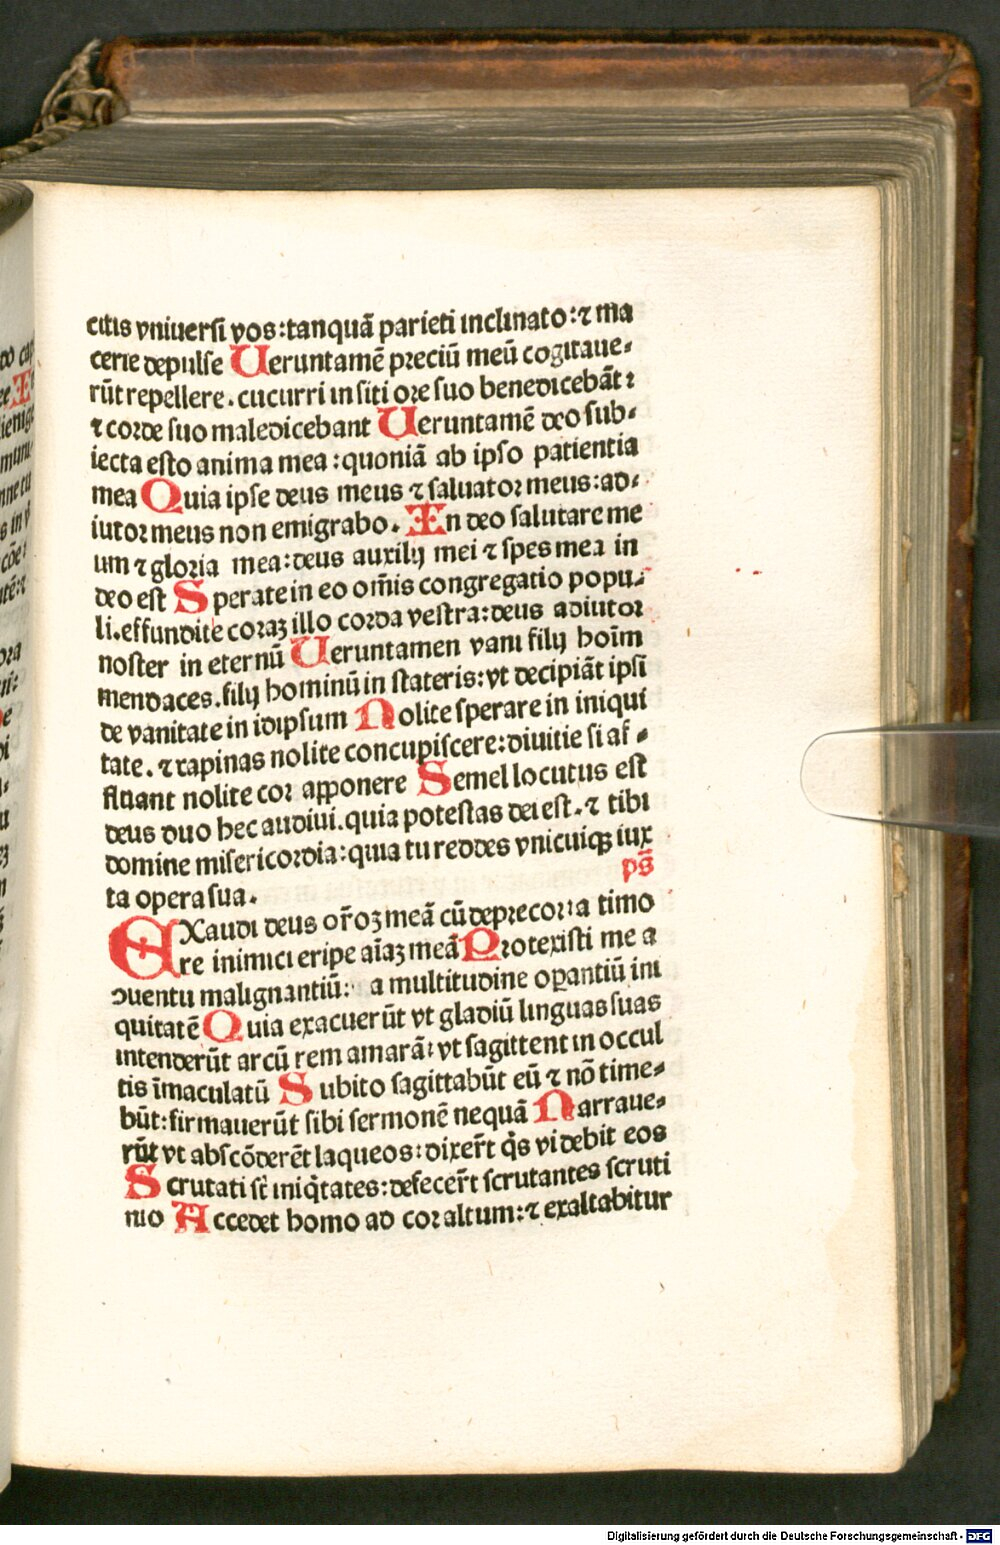 citis vniuersi vos:tanquã parieti inclinato:⁊ ma
cerie depulse Ueruntamẽ preciũ meũ cogitaue⸗
rũt repellere.cucurri in siti ore suo benedicebãt:
⁊ corde suo maledicebant Ueruntamẽ deo sub⸗
iecta esto anima mea:quoniã ab ipso patientia
mea Quia ipse deus meus ⁊ saluator meus:ad⸗
iutor meus non emigrabo. In deo salutare me
um ⁊ gloria mea:deus auxilij mei ⁊ spes mea in
deo est Sperate in eo om̃is congregatio popu⸗
li.effundite coraʒ illo corda vestra:deus adiutor
noster in eternũ Ueruntamen vani filij hoĩm
mendaces.filij hominũ in stateris:vt decipiãt ipsi
de vanitate in idipsum Nolite sperare in iniqui
tate.⁊ rapinas nolite concupiscere:diuitie si af⸗
fluant nolite cor apponere Semel locutus est
deus duo hec audiui.quia potestas dei est.⁊ tibi
domine misericordia:quia tu reddes vnicuiqꝫ iux
ta opera sua. ps̃
EXaudi deus or̃oʒ meã cũ deprecor:a timo
re inimici eripe aĩaʒ meã Protexisti me a
ↄuentu malignantiũ: a multitudine oꝑantiũ ini
quitatẽ Quia exacuerũt vt gladiũ linguas suas
intenderũt arcũ rem amarã:vt sagittent in occul
tis ĩmaculatũ Subito sagittabũt eũ ⁊ nõ time⸗
bũt:firmauerũt sibi sermonẽ nequã Narraue⸗
rũt vt abscõderẽt laqueos:dixer̃t q̃s videbit eos
Scrutati st̃ iniq̃tates:defecer̃t scrutantes scruti
nio Accedet homo ad cor altum:⁊ exaltabitur
Digitalisierung gefördert durch die Deutsche Forschungsgemeinschaft - DFG